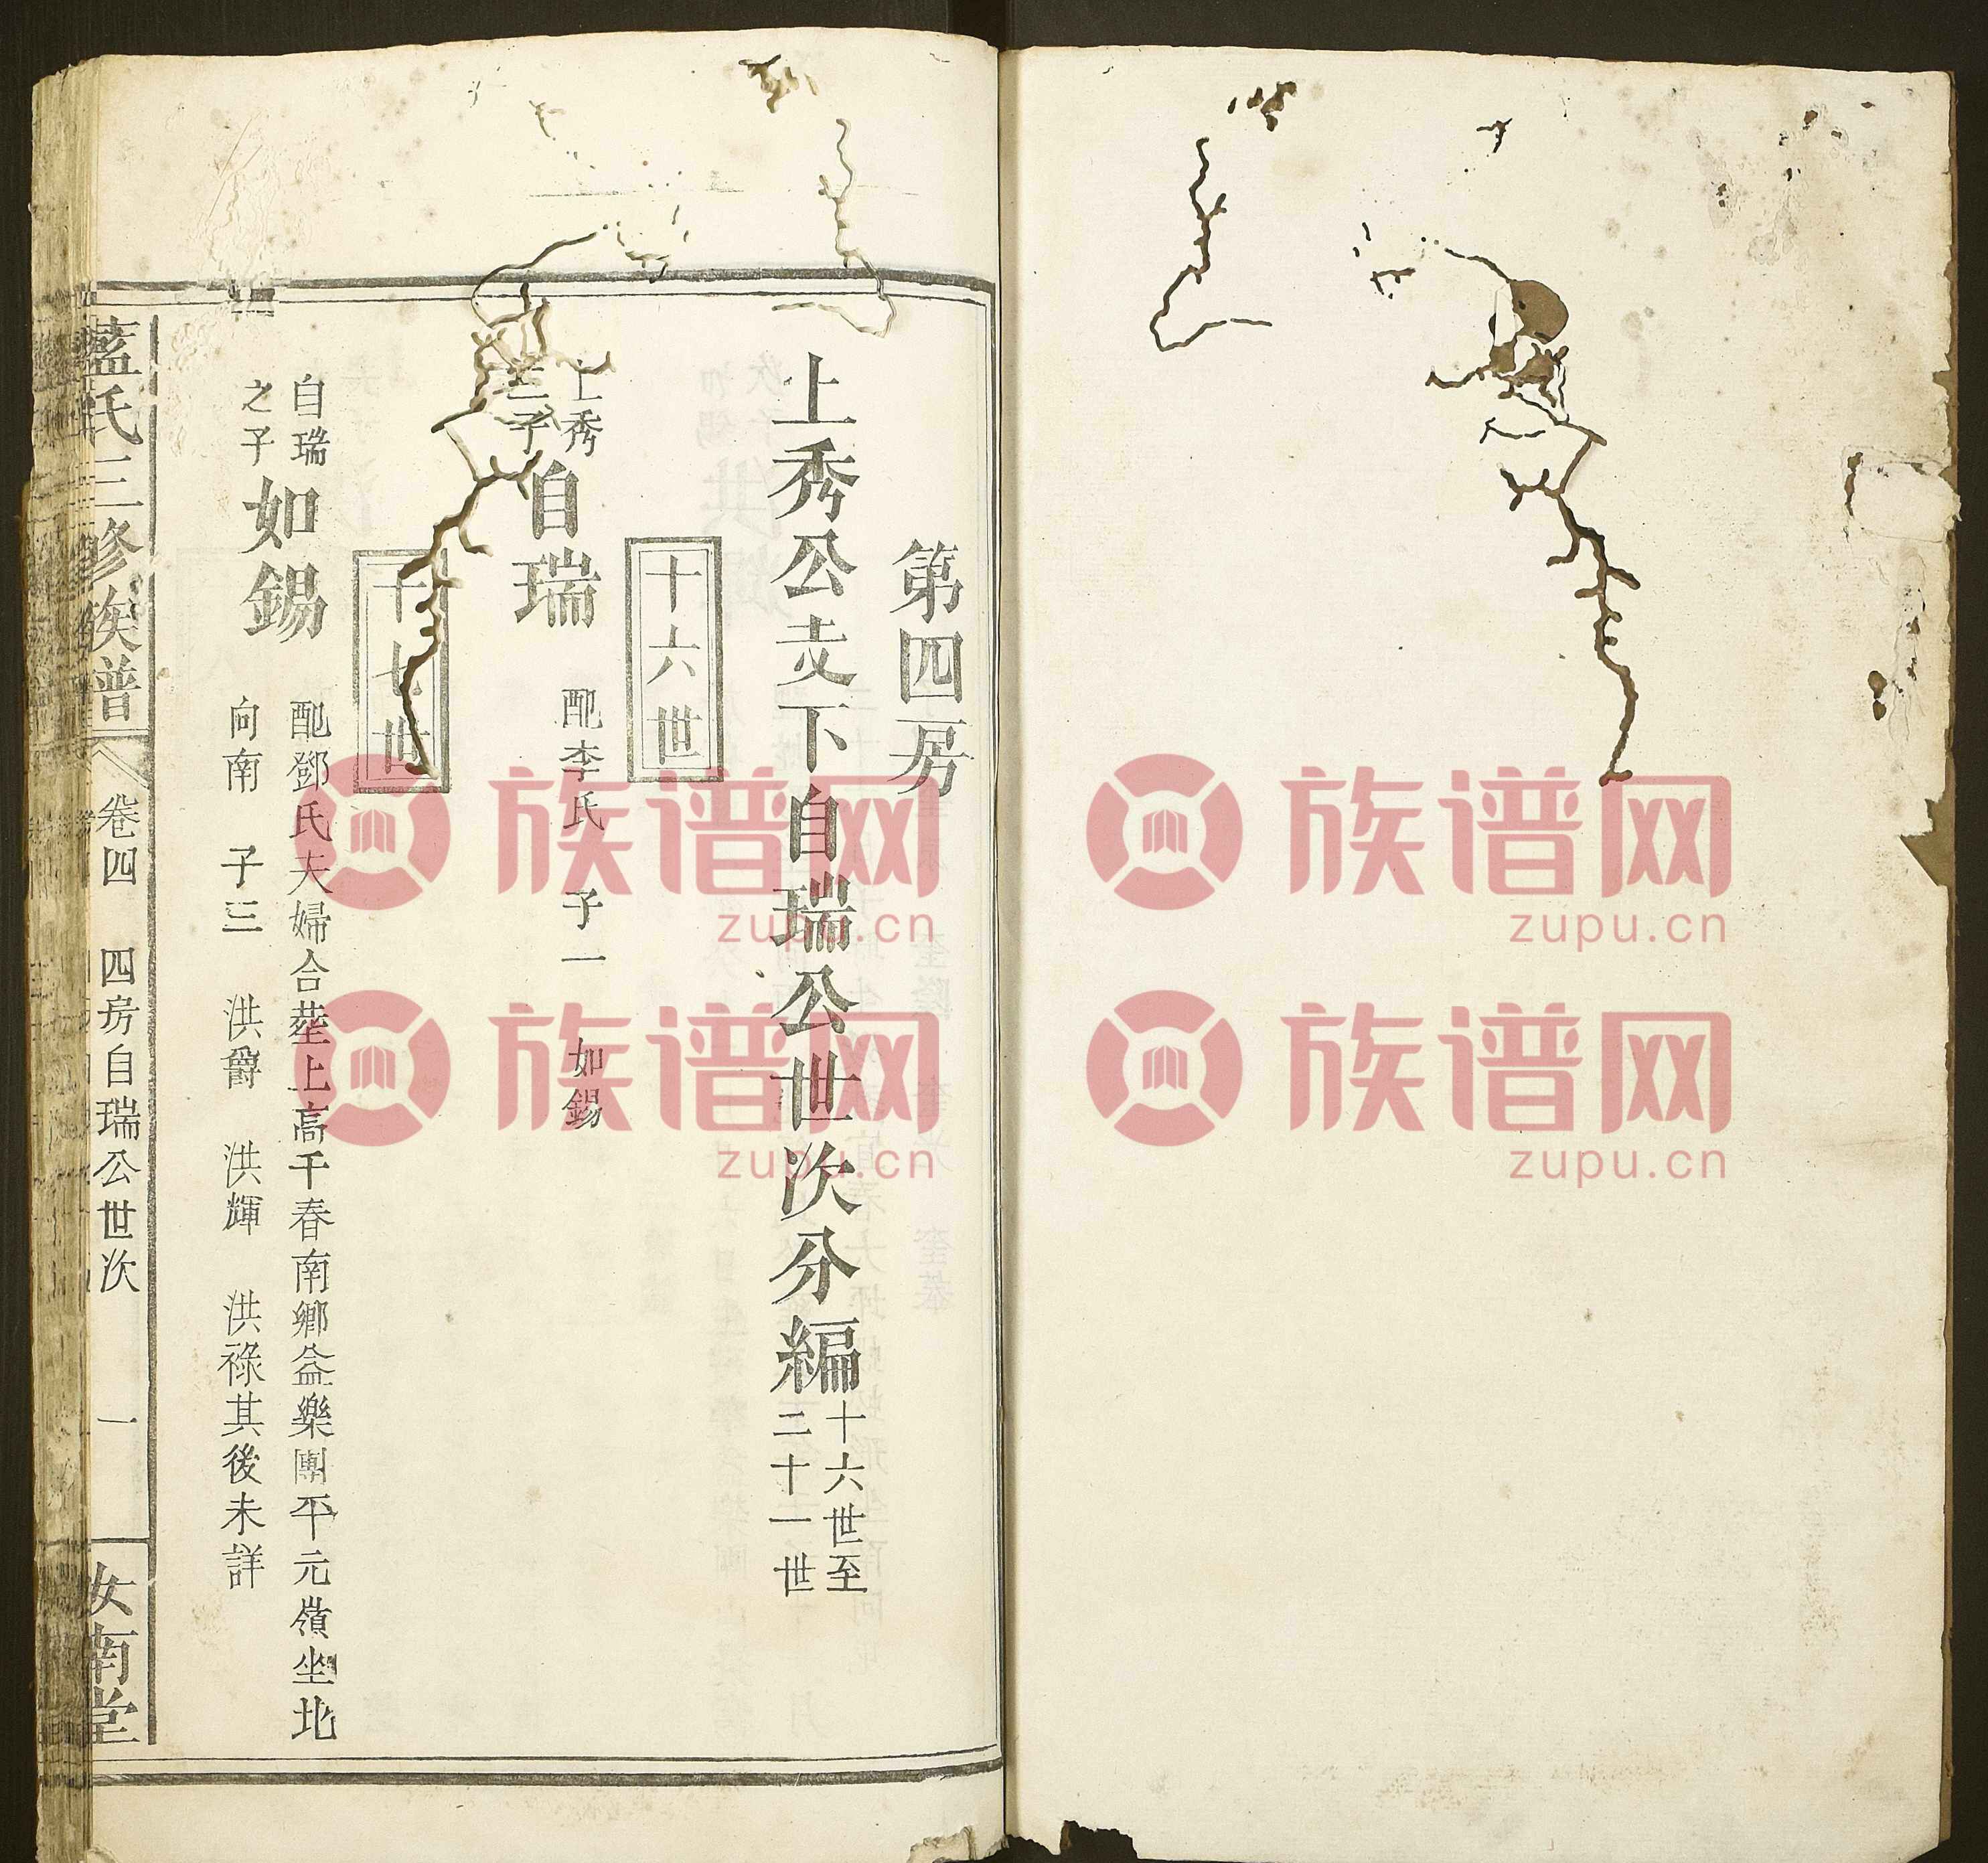 第四房
上秀公支下自瑞公世次分編
十六世至
二十一世
十六世
上秀
子
自瑞
配李氏 子一 如錫
十七世
自瑞
之子
如錫
配鄧氏夫婦合塟上高千春南鄉益樂團平元嶺坐北
向南 子三 洪爵 洪輝 洪祿其後未詳
藍氏三修族譜
卷四 四房自瑞公世次 一
汝南堂
族谱网
zupu.cn
族谱网
zupu.cn
族谱网
zupu.cn
族谱网
zupu.cn